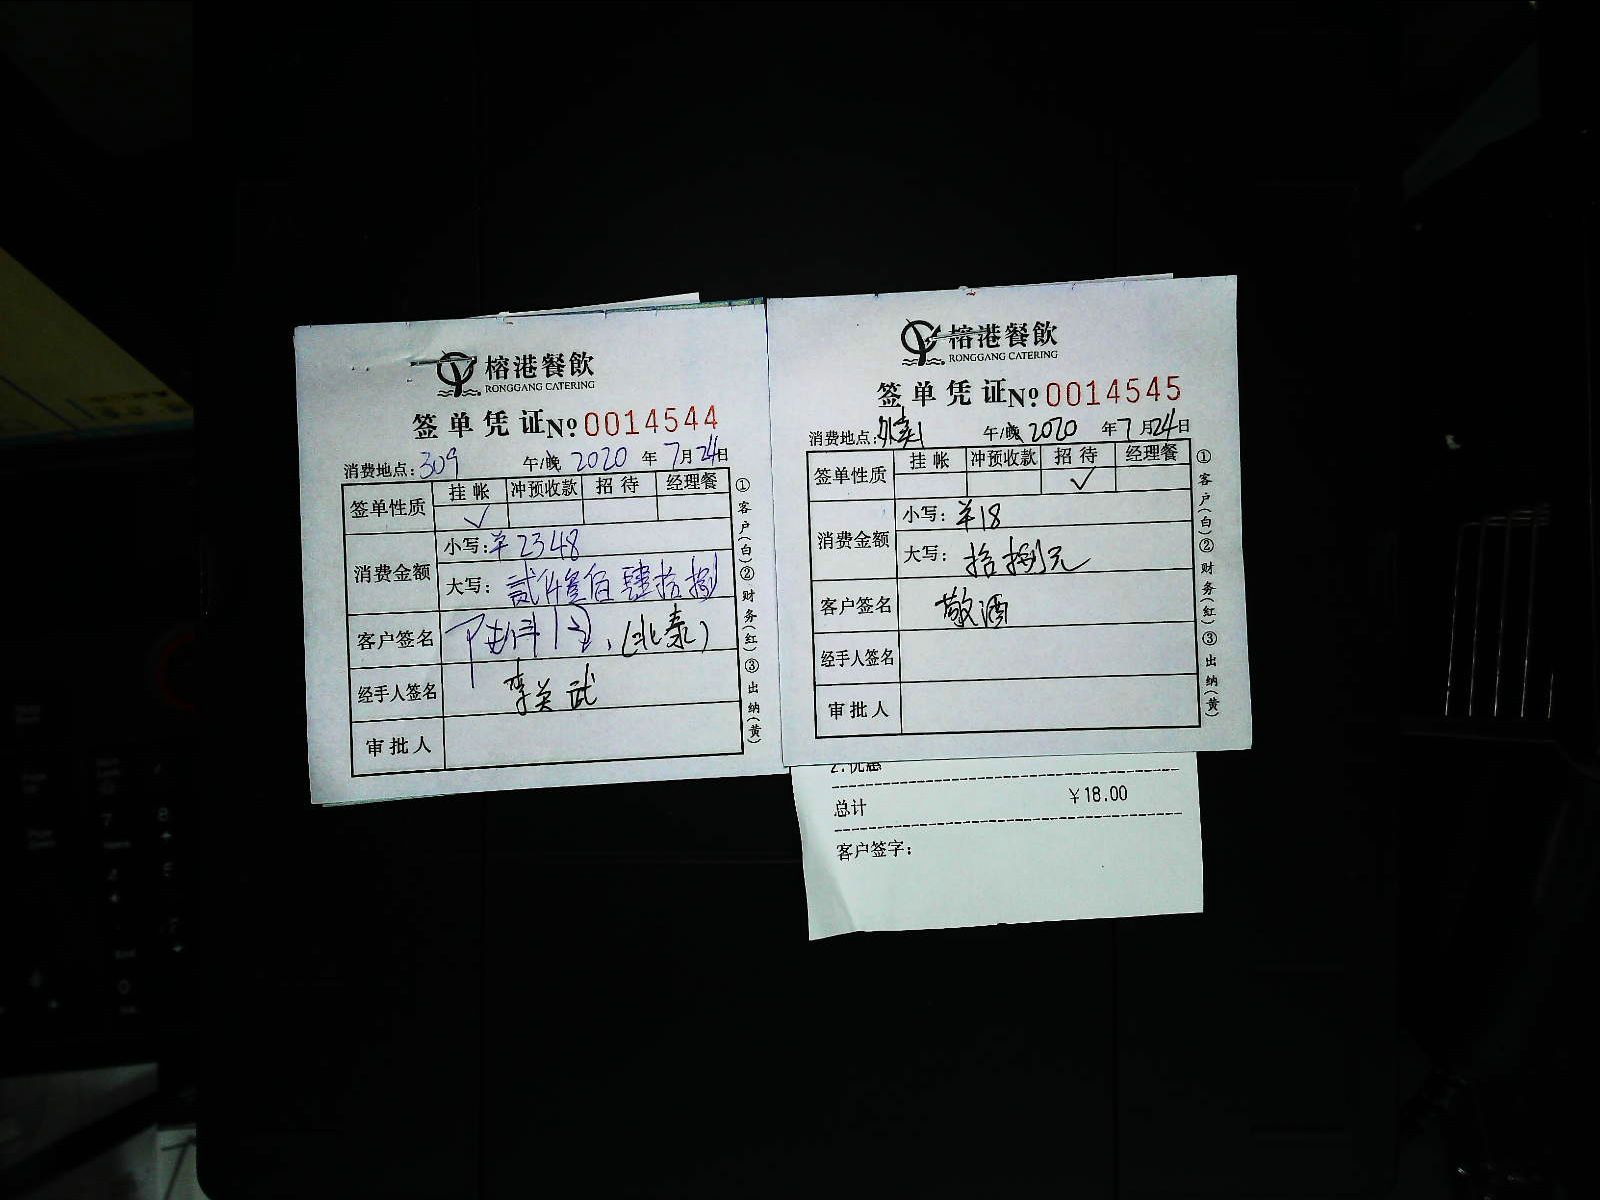 榕港餐飲
RONGGANG CATERING
签单凭证 No 0014544
消费地点:309 午/晚 2020 年 7 月 24 日
签单性质 挂帐 冲预收款 招待 经理餐
✓
消费金额 小写:¥2348
大写:贰仟叁佰肆拾捌
客户签名 (北泰)
经手人签名 李关武
审批人
①客户(白)②财务(红)③出纳(黄)
榕港餐飲
RONGGANG CATERING
签单凭证 No 0014545
消费地点:外卖1 午/晚 2020 年 7 月 24 日
签单性质 挂帐 冲预收款 招待 经理餐
✓
消费金额 小写:¥18
大写:拾捌元
客户签名 敬酒
经手人签名
审批人
①客户(白)②财务(红)③出纳(黄)
2.优惠
总计 ¥18.00
客户签字: